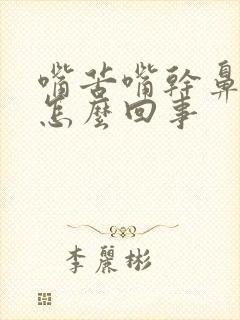 嘴苦嘴幹鼻
怎麼回事
李麗彬